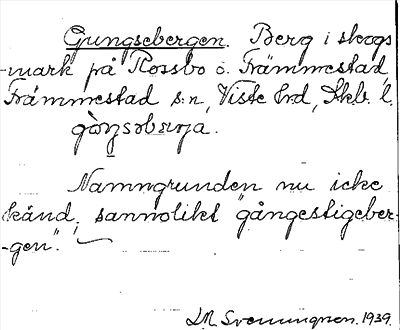 Gungsebergen. Berg i skogs
-mark på Rossbo o. Främmestad
Främmestad s:n, Viste hrd, Skb. l.
Namngrunden nu icke
känd, sannolikt "gångestigeber-
-gen".
Svenungsson. 1939.